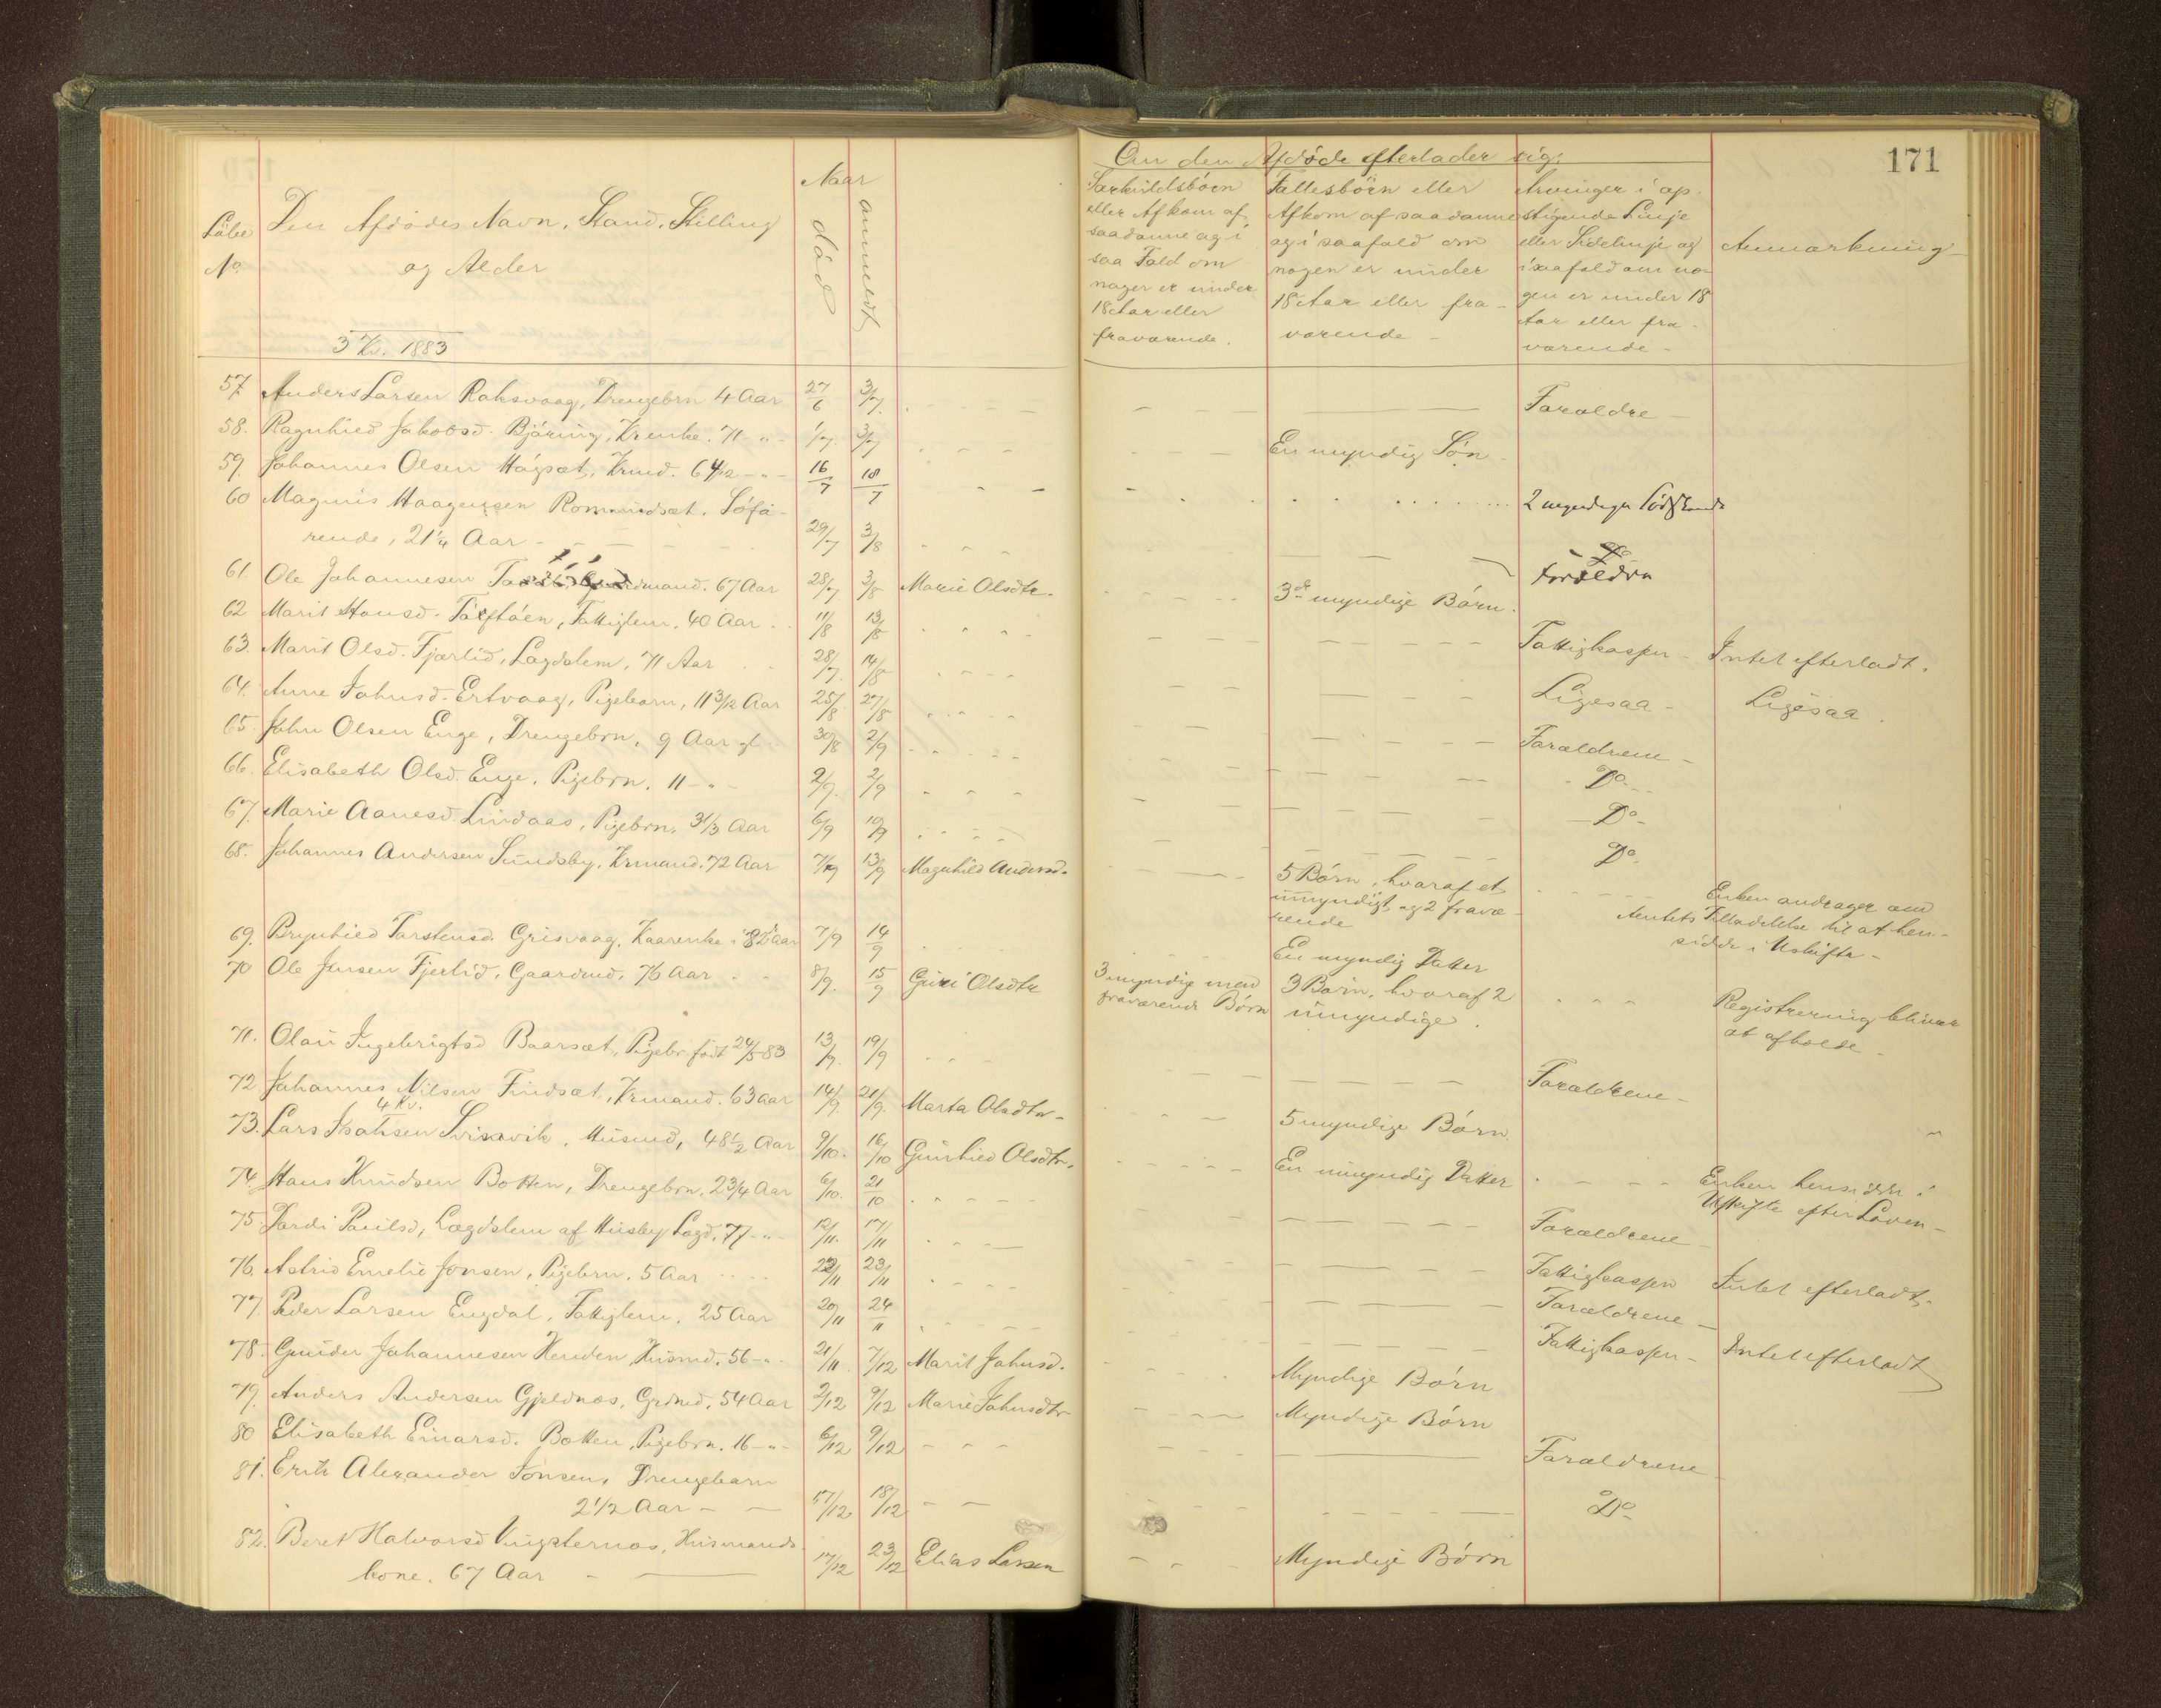 171
Löbe No.
Den Afdödes Navn, Stand, Stilling
og Alder
Naar
död
anmeldt
Om den Afdöde efterlader sig:
Særkuldsbörn eller Afkom af saadanne og i saa Fald om nogen er under 18 Aar eller fraværende.
Fællesbörn eller Afkom af saadanne og i saafald om nogen er under 18 Aar eller fraværende
Arvinger i opstigende Linje eller Sidelinje og i saafald om nogen er under 18 Aar eller fraværende
Anmærkning
3 Kv. 1883
57 Anders Larsen Roksvaag, Drengebrn 4 Aar 27/6 3/7. Foræeldre
58. Ragnhied Jakobsd. Björing, Krenke. 71 -"- 1/7. 3/7 En myndig Sön
59. Johannes Olsen Högsæt, Krmd. 64 16/7 18/7 2 myndige
60 Magnus Haagensen Romundsæt. Söfa-
rende, 21 1/4 Aar 29/7 3/8 Do Foreldra
61. Ole Johannesen 67 Aar 28/7 3/8 Marie Olsdtr. 3de myndige Börn.
62 Marit Hansd. Fattiglem, 40 Aar 11/8 13/8 Fattigkassen Intet efterladt.
63. Marit Olsd. Fjærlid, Lægdslem, 71 Aar 28/7. 14/8 Ligesaa Ligesaa.
64. Anne Johnsd. Ertvaag, Pigebarn, 11 3/12 Aar 25/8 27/8 Forældrene
65. John Olsen Enge, Drengebrn, 9 Aar gl. 30/8 2/9 Do
66. Elisabeth Olsd. Enge, Pigebrn. 11 -"- 2/9. 2/9 Do
67. Marie Aanesd. Lindaas, Pigebrn, 3 1/3 Aar 6/9 10/9 Do
68. Johannes Andersen Sundsby, Krmand. 72 Aar 7/9 13/9 Magnhild Andersd. 5 Börn, hvoraf et
umyndigt, og 2 fravæ-
rende
Enken andrager om
Amtets Tilladelse til at hen-
sidde i Uskifte
69. Brynhied Torstensd. Grisvaag, Kaarenke 82 Aar 7/9 14/9 En myndig Datter
70 Ole Jensen Fjerlid, Gaardmd, 76 Aar 8/9. 15/9 Guri Olsdtr 3 myndig men
fraværende Börn
3 Börn, hvoraf 2
umyndige.
Registrering bliver
at afholde
71. Olau Ingebrigtsd Baarsæt, Pigebr. födt 24/5 83 13/9. 19/9 Forældrene
72. Johannes Nilsen Findsæt, Krmand. 63 Aar 14/9 21/9. Marta Olsdtr 5 myndige Börn
4 Kv.
73. Lars Isaksen Svinvik, Husmd, 48 1/2 Aar 9/10. 16/10 Gunhied Olsdtr. En umyndig Datter
Enken hensidder i
Uskifte efter Loven
74. Hans Knudsen Botten, Drengebrn. 2 3/4 Aar 6/10. 21/10 Forældrene
75. Pauilsd, Lægdslem af Husby Lægd. 77 -"- 12/11. 17/11 Fattigkassen Intet efterladt
76. Astrid Emelie Jonsen, Pigebrn. 5 Aar 22/11 23/11 Forældrene
77. Peder Larsen Engdal, Fattiglem, 25 Aar 20/11 24/11 Fattigkassen Intet efterladt
78. Gunder Johannesen Henden, Husmd. 56 -"- 21/11. 7/12 Marit Johnsd. Myndige Börn
79. Anders Andersen Gjeldnæs, Grdmd. 54 Aar 2/12 9/12 Marie Johnsdtr Myndige Börn
80 Elisabeth Einarsd. Botten, Pigebrn. 16 -"- 6/12 9/12 Forældrene
81. Erik Alexander Jonsen, Drengebarn
2 1/2 Aar 18/12 Do
82. Beret Halvorsd Vingsternæs, Husmands-
kone. 67 Aar 17/12 23/12 Elias Larsen Myndige Börn